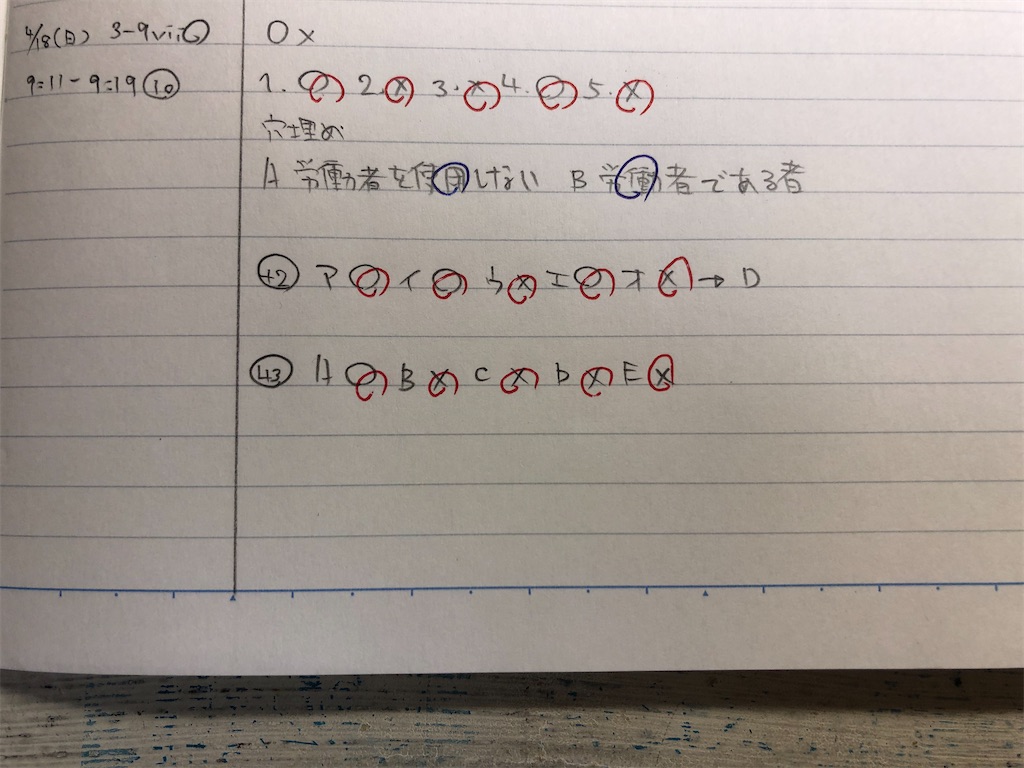 4/18(日) 3-9vii〇 〇×
9:11-9:19⑩ 1.〇 2.× 3.× 4.〇 5.×
穴埋め
A 労働者を使用しない B 労働者である者
㊷ ア〇イ〇ウ×エ〇オ×→D
㊸ A〇B×C×D×E×